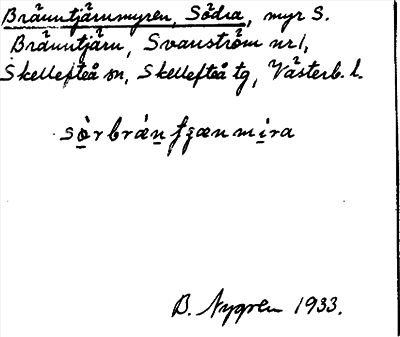 Bränntjärnmyren, Södra, myr S.
Bränntjärn, Svanström nr 1,
Skellefteå sn, Skellefteå tg, Västerb. l.
B. Nygren 1933.